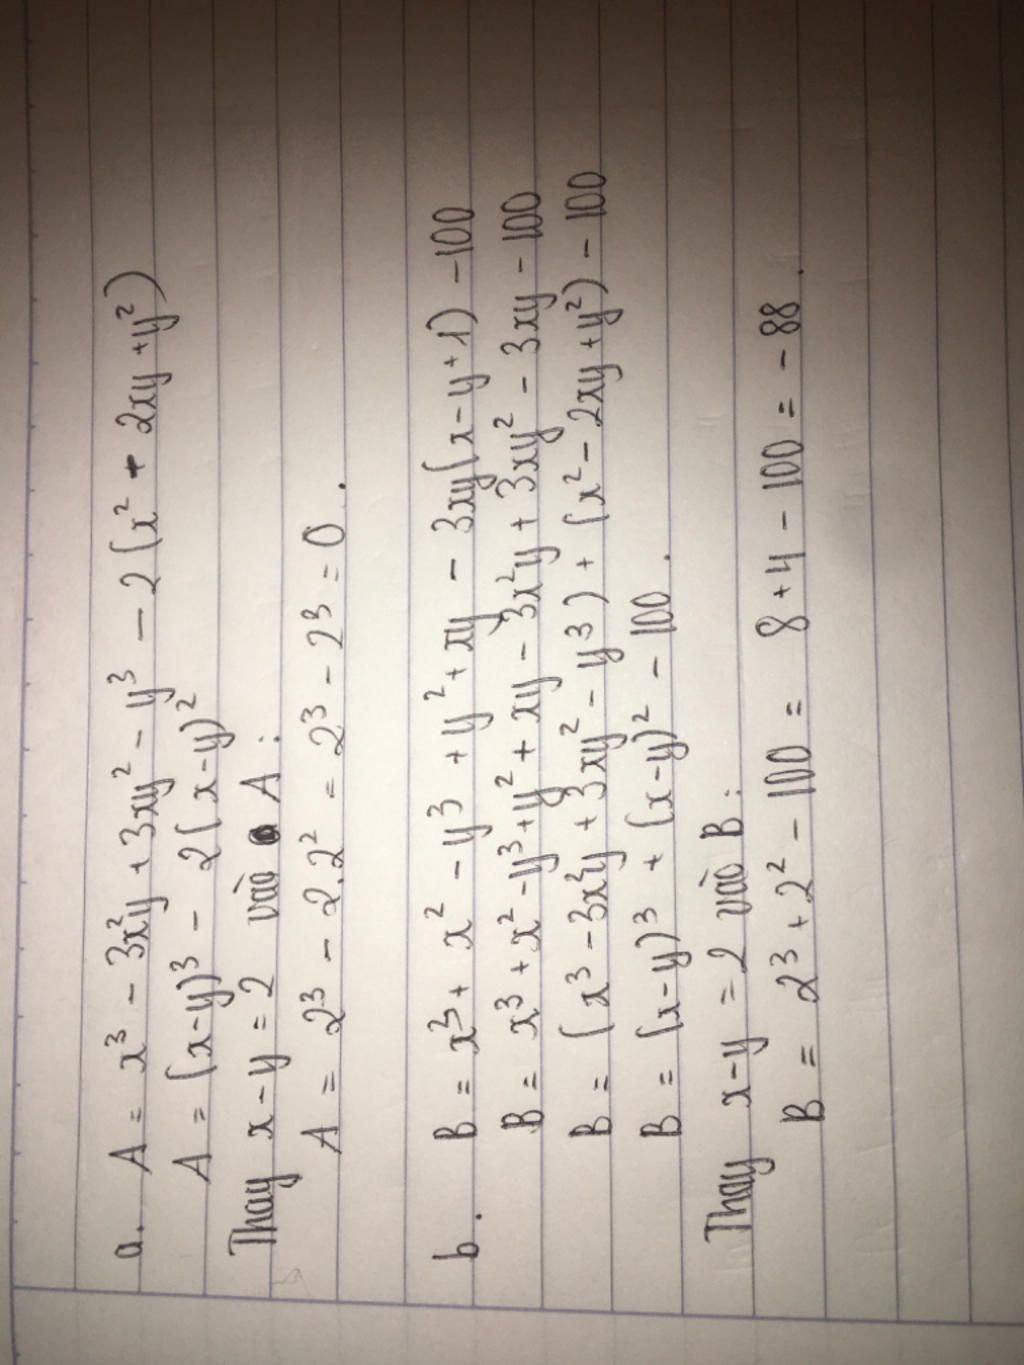 a. A = x³ - 3x²y + 3xy² - y³ - 2(x² + 2xy + y²)
A = (x-y)³ - 2(x-y)²
Thay x-y = 2 vào A :
A = 2³ - 2.2² = 2³ - 2³ = 0.
b. B = x³ + x² - y³ + y² + xy - 3xy(x-y+1) - 100
B = x³ + x² - y³ + y² + xy - 3x²y + 3xy² - 3xy - 100
B = (x³ - 3x²y + 3xy² - y³) + (x² - 2xy + y²) - 100
B = (x-y)³ + (x-y)² - 100.
Thay x-y = 2 vào B :
B = 2³ + 2² - 100 = 8 + 4 - 100 = -88.